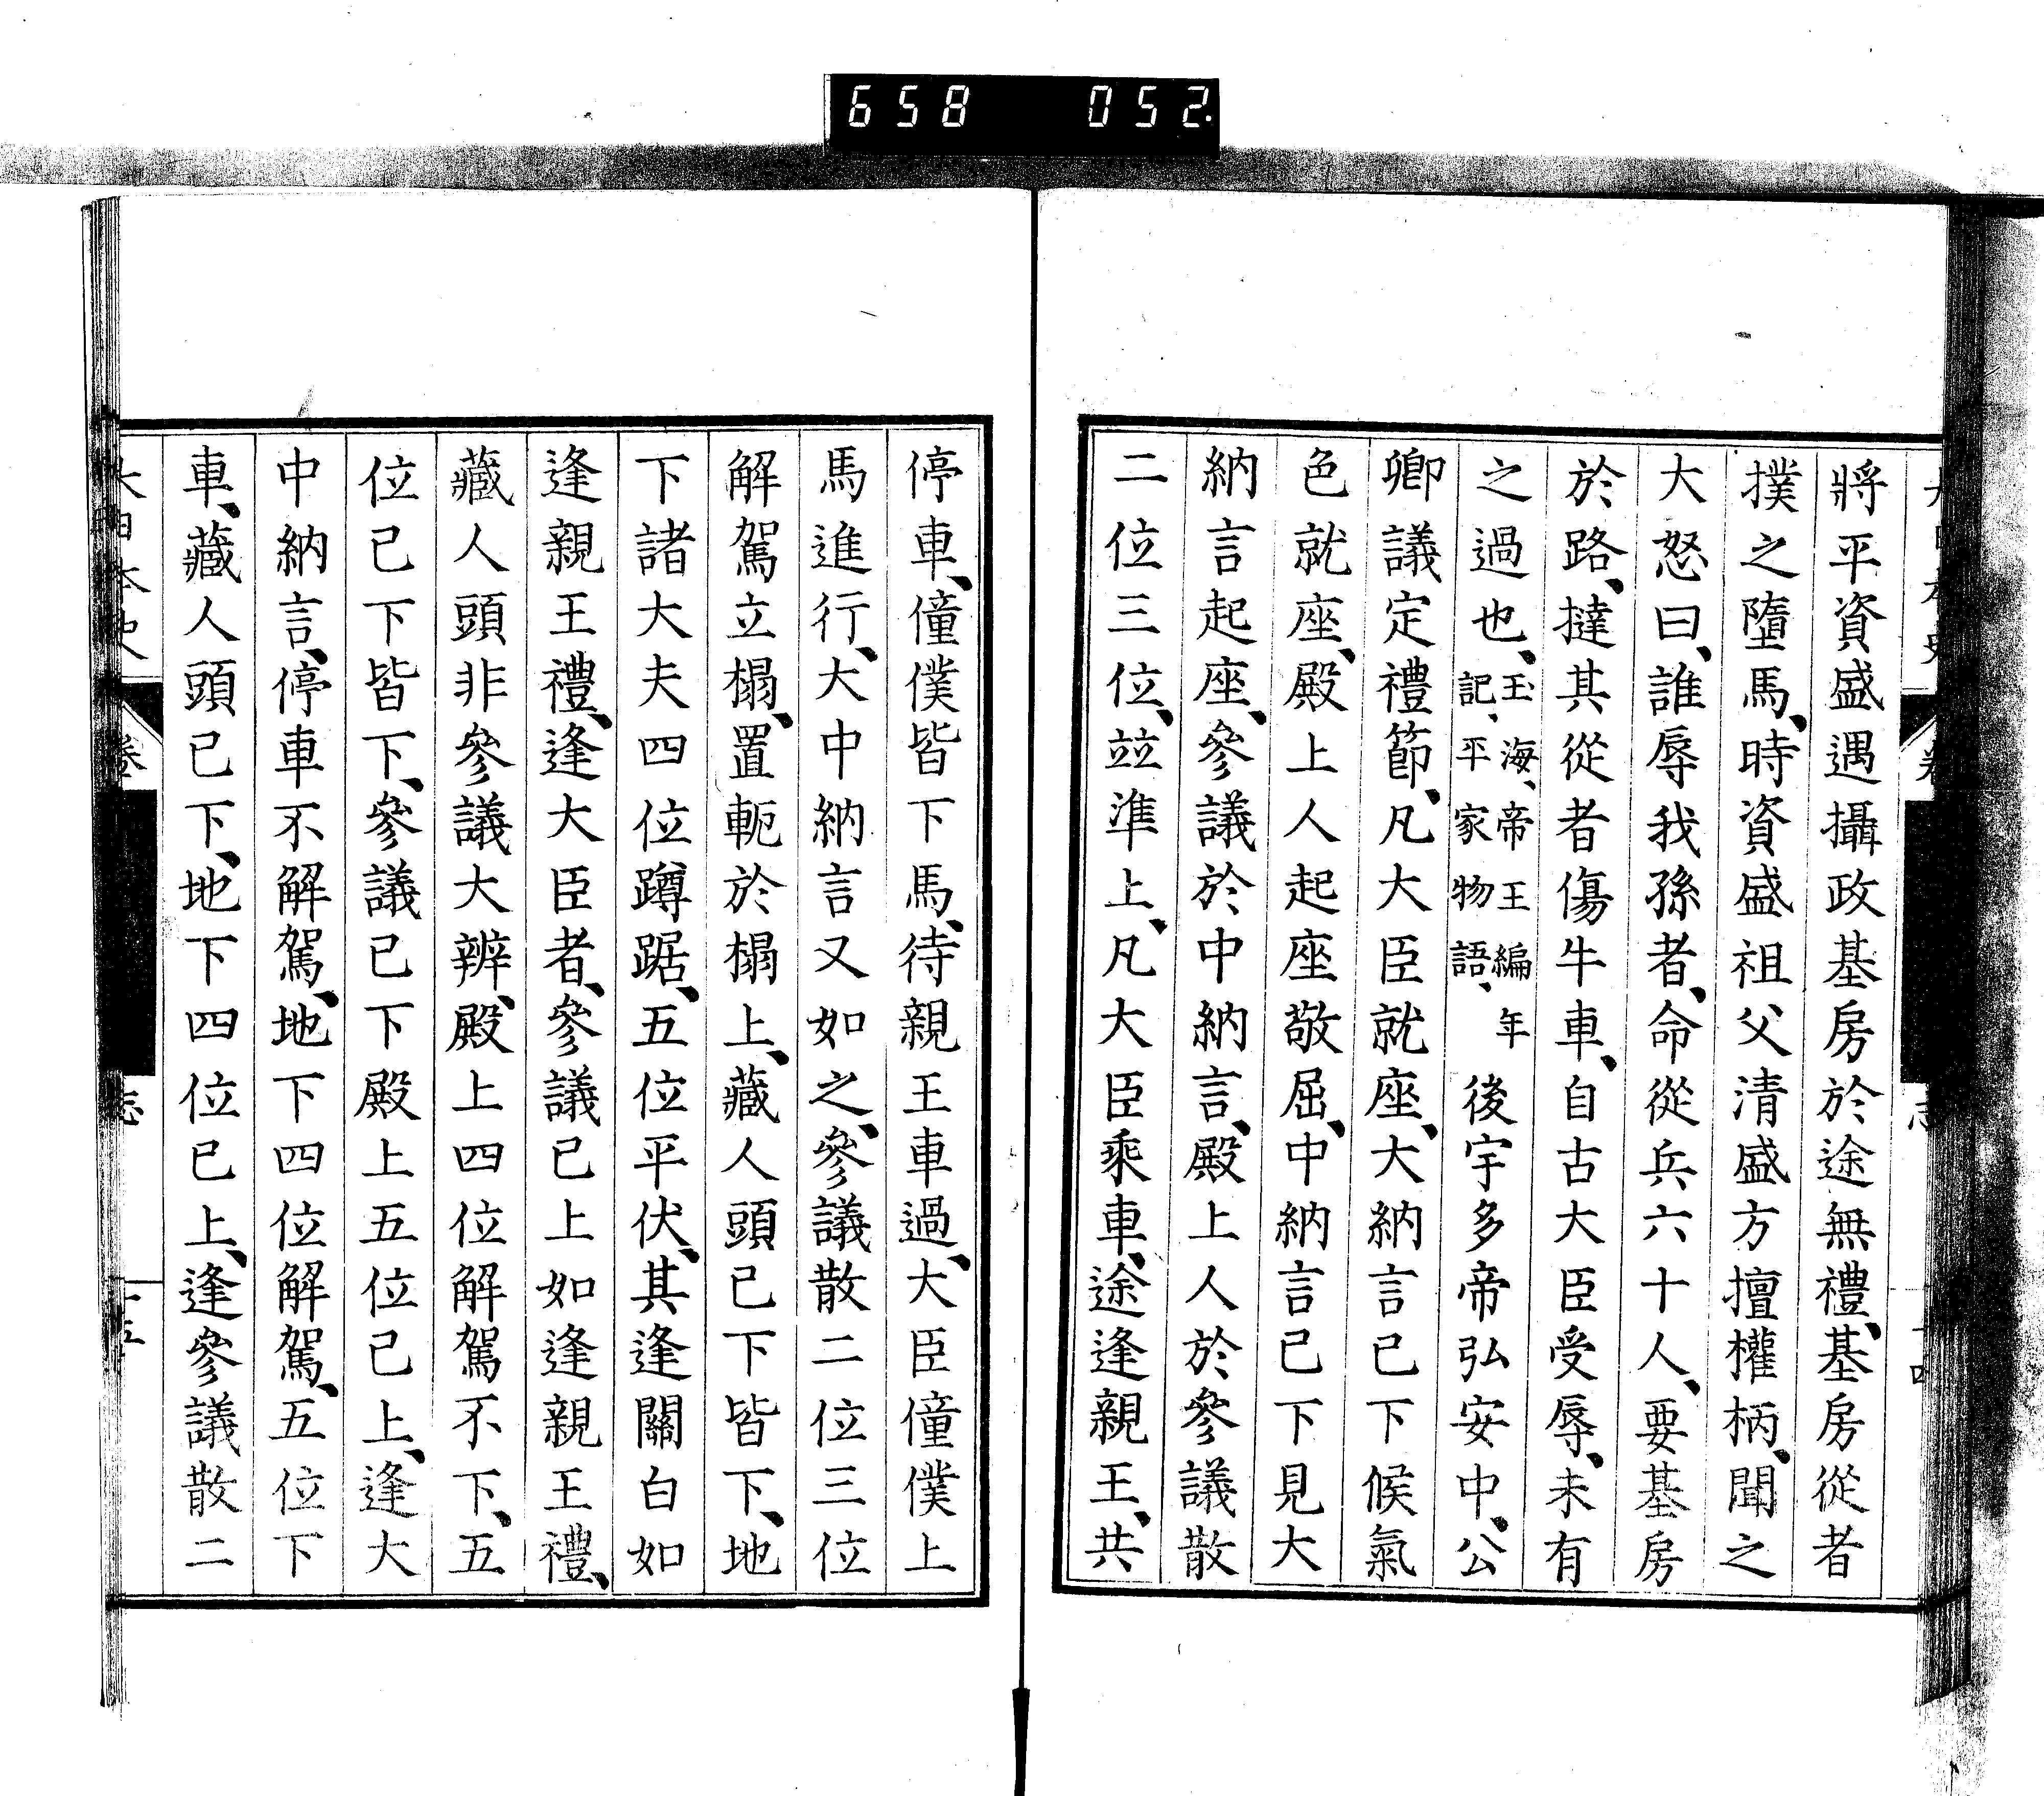 658 052
將平資盛遇攝政基房於途無禮、基房從者
撲之墮馬、時資盛祖父清盛方擅權柄、聞之
大怒曰、誰辱我孫者、命從兵六十人、要基房
於路、撻其從者傷牛車、自古大臣受辱、未有
之過也、玉海、帝王編年記、平家物語、後宇多帝弘安中、公
卿議定禮節、凡大臣就座、大納言已下候氣
色就座、殿上人起座敬屈、中納言已下見大
納言起座、參議於中納言、殿上人於參議散
二位三位、竝準上、凡大臣乘車、途逢親王、共
停車、僮僕皆下馬、待親王車過、大臣僮僕上
馬進行、大中納言又如之、參議散二位三位
解駕立榻、置軛於榻上、藏人頭已下皆下、地
下諸大夫四位蹲踞、五位平伏、其逢關白如
逢親王禮、逢大臣者、參議已上如逢親王禮、
藏人頭非參議大辨、殿上四位解駕不下、五
位已下皆下、參議已下殿上五位已上、逢大
中納言、停車不解駕、地下四位解駕、五位下
車、藏人頭已下、地下四位已上、逢參議散二
大日本史 卷 志 十五